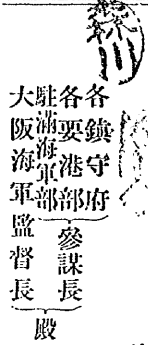 森川
各鎮守府
各要港部
駐滿海軍部
參謀長
大阪海軍監督長
殿